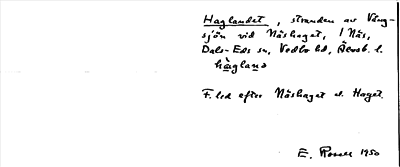 Haglandet, stranden av Väng-
sjön vid Näshaget, / Näs,
Dals-Eds sn, Vedbo hd, Älvsb. l.
hàgland
F. led efter Näshaget el. Haget.
E. Rosell 1950